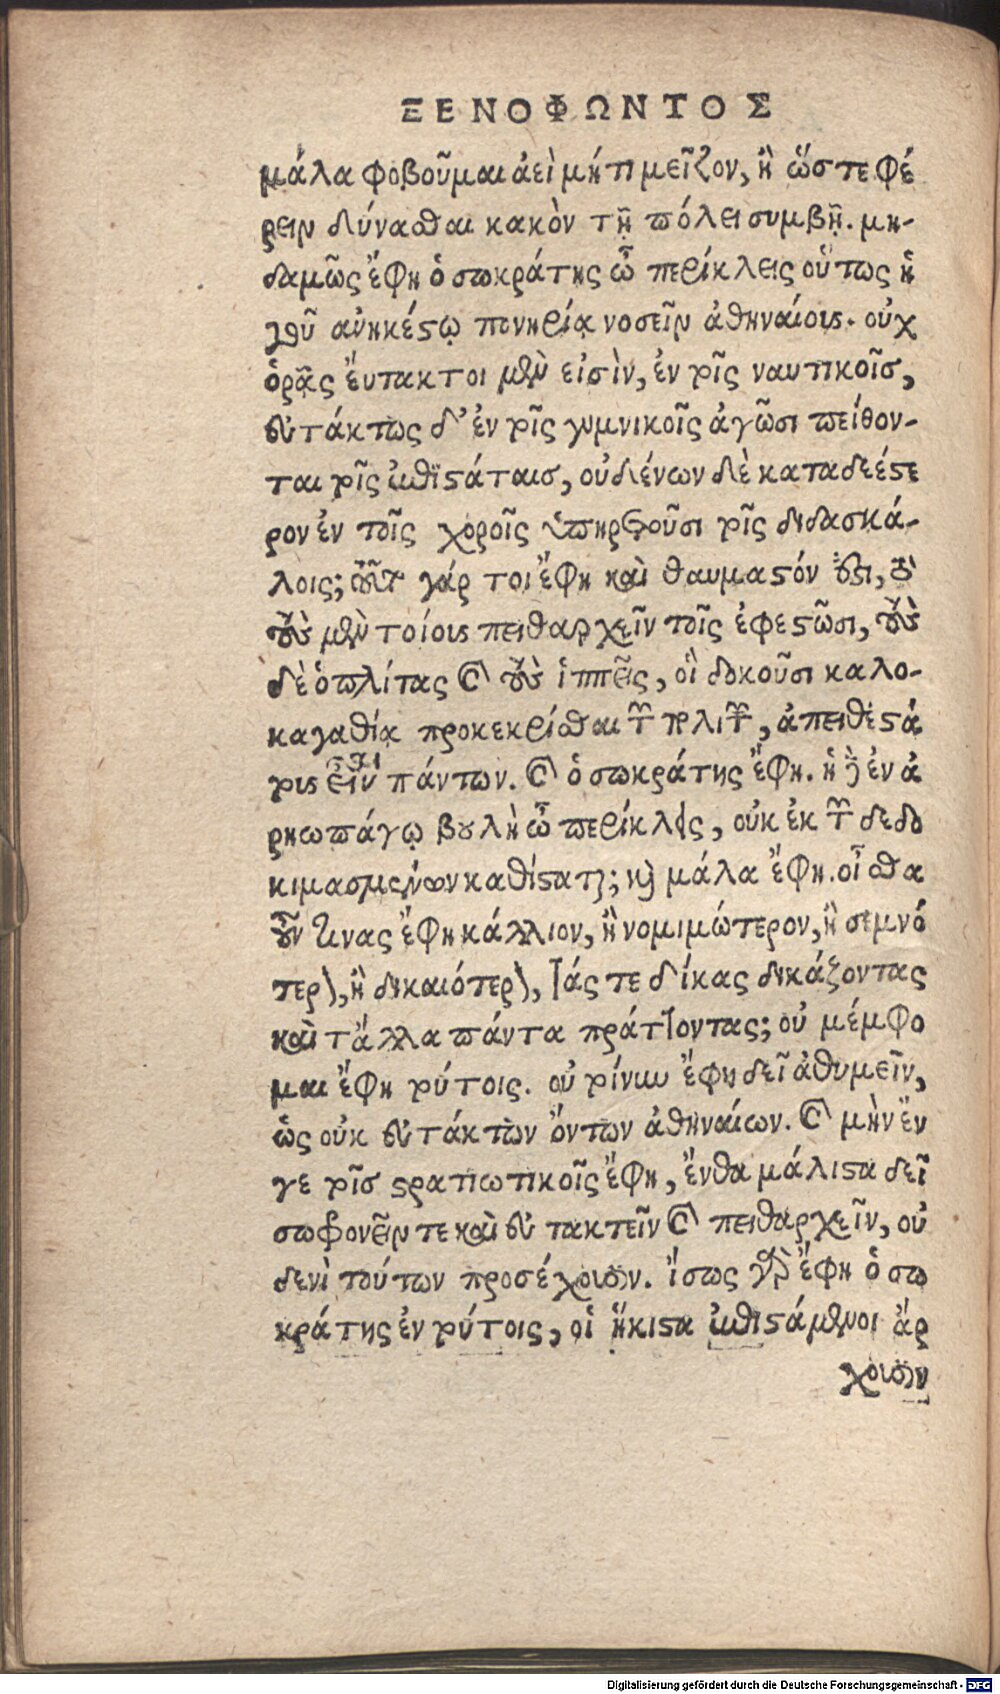 ΞΕΝΟΦΩΝΤΟΣ
μάλα φοβοῦμαι ἀεὶ μήτι μεῖζον, ἢ ὥστε φέ
ρειν δύναϑαι κακὸν τῇ πόλει συμβῇ. μη-
δαμῶς ἔφη ὁ σωκράτης ὦ περίκλεις οὕτως ἡ
γοῦ ἀνηκέστῳ πονηρίᾳ νοσεῖν ἀθηναίους. οὐχ
ὁρᾷς ἔυτακτοι μὲν εἰσὶν, ἐν τοῖς ναυτικοῖς,
εὐτάκτως δ' ἐν τοῖς γυμνικοῖς ἀγῶσι πείθον-
ται τοῖς ἐπιστάταις, οὐδένων δὲ καταδεέστε
ρον ἐν τοῖς χοροῖς ὑπηρετοῦσι τοῖς διδασκά-
λοις; τοῦτο γάρ τοι ἔφη καὶ θαυμαστόν ἐστι, τὸ
τοὺς μὲν τοίους πειθαρχεῖν τοῖς ἐφεστῶσι, τοὺς
δὲ ὁπλίτας καὶ τοὺς ἱππεῖς, οἳ δοκοῦσι καλο-
καγαθίᾳ προκεκρίσθαι τῶν πολιτῶν, ἀπειθεστά
τους εἶναι πάντων. καὶ ὁ σωκράτης ἔφη. ἡ δὲ ἐν ἀ
ρηωπάγῳ βουλὴ ὦ περίκλεις, οὐκ ἐκ τῶν δεδο
κιμασμένων καθίσταται; καὶ μάλα ἔφη. οἶσθα
οὖν τινας ἔφη κάλλιον, ἢ νομιμώτερον, ἢ σεμνό
τερον, ἢ δικαιότερον, τάς τε δίκας δικάζοντας
καὶ τἄλλα πάντα πράττοντας; οὐ μέμφο
μαι ἔφη τούτοις. οὐ τοίνυν ἔφη δεῖ ἀθυμεῖν,
ὡς οὐκ εὐτάκτων ὄντων ἀθηναίων. καὶ μὴν ἔν
γε τοῖς στρατιωτικοῖς ἔφη, ἔνθα μάλιστα δεῖ
σωφρονεῖν τε καὶ εὐτακτεῖν καὶ πειθαρχεῖν, οὐ
δενὶ τούτων προσέχουσιν. ἴσως γὰρ ἔφη ὁ σω
κράτης ἐν τούτοις, οἱ ἥκιστα ἐπιστάμενοι ἄρ
χουσιν
Digitalisierung gefördert durch die Deutsche Forschungsgemeinschaft - DFG